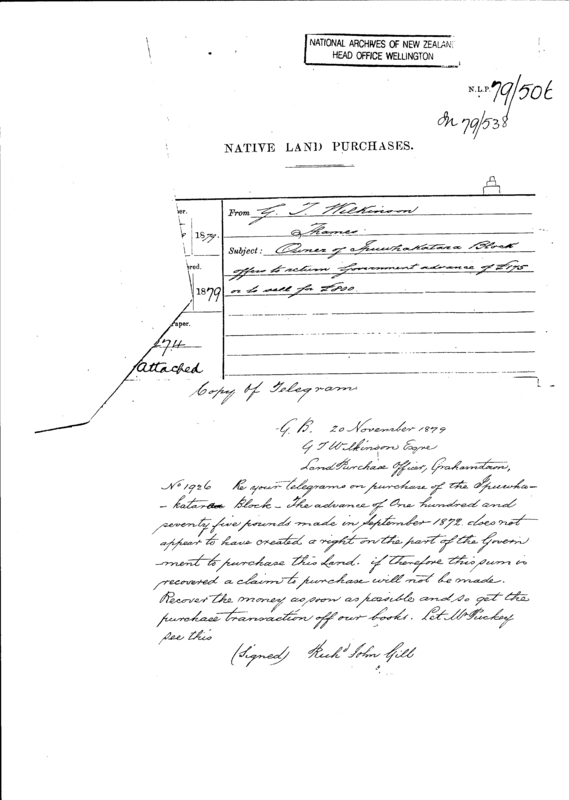 NATIONAL ARCHIVES OF NEW ZEALAND
HEAD OFFICE WELLINGTON
N.L.P. 79/506
In 79/538
NATIVE LAND PURCHASES.
er.
1879.
From G. T. Wilkinson
Thames
Subject: Owner of Ipuwhakatara Block
offers to return Government advance of £175
or to sell for £800
red.
1879
aper.
174
attached
Copy of Telegram
G. B. 20 November 1879
G T Wilkinson Esqre
Land Purchase Officer, Grahamtown,
No 1926 Re your telegrams on purchase of the Ipuwha-
-katara Block - The advance of One hundred and
seventy five pounds made in September 1872 does not
appear to have created a right on the part of the Govern
ment to purchase this Land. if therefore this sum is
recovered a claim to purchase will not be made.
Recover the money as soon as possible and so get the
purchase transaction off our books. Let Mr Puckey
see this
(Signed) Richd John Gill